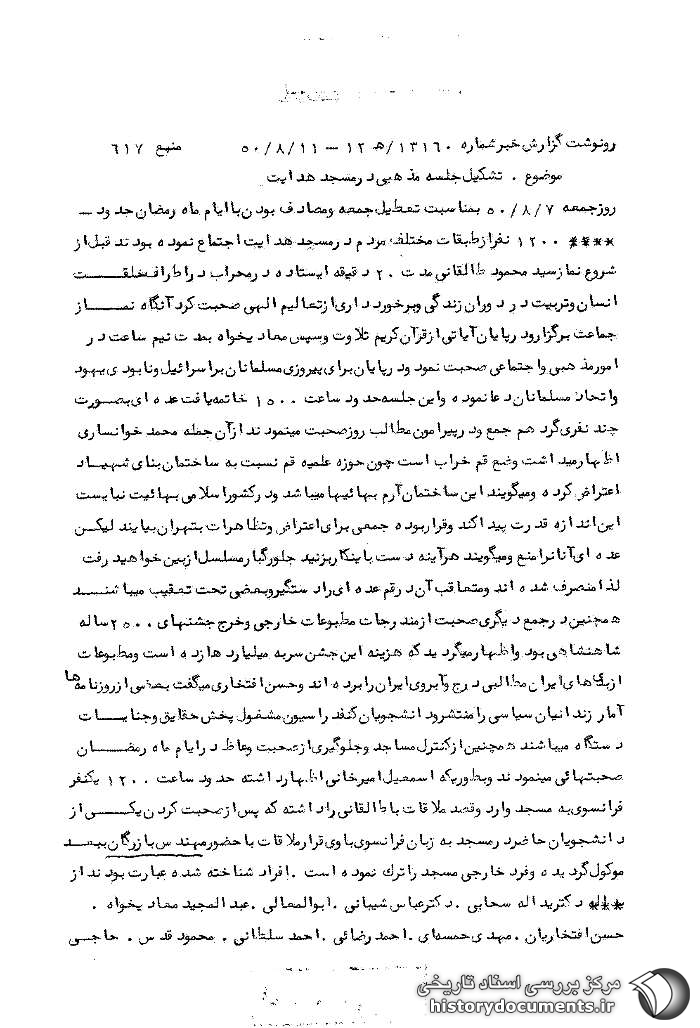 رونوشت گزارش خبر شماره ۱۳۱۶۰/ه‍ ۱۲ – ۵۰/۸/۱۱ منبع ۶۱۷
موضوع . تشکیل جلسه مذهبی در مسجد هدایت
روز جمعه ۵۰/۸/۷ بمناسبت تعطیل جمعه ومصادف بودن با ایام ماه رمضان حدود –
**** ۱۲۰۰ نفر از طبقات مختلف مردم در مسجد هدایت اجتماع نموده بودند قبل از
شروع نماز سید محمود طالقانی مدت ۲۰ دقیقه ایستاده در محراب در اطراف خلقت
انسان وتربیت در دوران زندگی وبرخورداری از تعالیم الهی صحبت کرد آنگاه نماز
جماعت برگزار ودر پایان آیاتی از قرآن کریم تلاوت وسپس معادیخواه بمدت نیم ساعت در
امور مذهبی واجتماعی صحبت نمود ودر پایان برای پیروزی مسلمانان بر اسرائیل ونابودی یهود
واتحاد مسلمانان دعا نموده واین جلسه حدود ساعت ۱۵۰۰ خاتمه یافت عده ای بصورت
چند نفری گرد هم جمع ودر پیرامون مطالب روز صحبت مینمودند از آن جمله محمد خوانساری
اظهار میداشت وضع قم خراب است چون حوزه علمیه قم نسبت به ساختمان بنای شهیاد
اعتراض کرده ومیگویند این ساختمان آرم بهائیها میباشد ودر کشور اسلامی بهائیت نبایست
این اندازه قدرت پیدا کند وقرار بوده جمعی برای اعتراض وتظاهرات بتهران بیایند لیکن
عده ای آنانرا منع ومیگویند هرآینه دست باینکار بزنید جلو رگبار مسلسل از بین خواهید رفت
لذا منصرف شده اند ومتعاقب آن در قم عده ای را دستگیر وبعضی تحت تعقیب میباشند
همچنین در جمع دیگری صحبت از مندرجات مطبوعات خارجی وخرج جشنهای ۲۵۰۰ ساله
شاهنشاهی بود واظهار میگردید که هزینه این جشن سر به میلیاردها زده است ومطبوعات
اروپا از بدیهای ایران مطالبی درج وآبروی ایران را برده اند وحسن افتخاری میگفت بعضی از روزنامه ها
آمار زندانیان سیاسی را منتشر ودانشجویان کنفدراسیون مشغول پخش حقایق وجنایات
دستگاه میباشند همچنین از کنترل مساجد وجلوگیری از صحبت وعاظ در ایام ماه رمضان
صحبتهائی مینمودند وبطوریکه اسمعیل امیرخانی اظهار داشته حدود ساعت ۱۲۰۰ یکنفر
فرانسوی به مسجد وارد وقصد ملاقات با طالقانی را داشته که پس از صحبت کردن یکی از
دانشجویان حاضر در مسجد به زبان فرانسوی با وی قرار ملاقات با حضور مهندس بازرگان ببعد
موکول گردیده وفرد خارجی مسجد را ترک نموده است . افراد شناخته شده عبارت بودند از
دکتر یداله سحابی . دکتر عباس شیبانی . ابوالمعالی . عبدالمجید معادیخواه .
حسن افتخاریان . مهدی حمسه ای . احمد رضائی . احمد سلطانی . محمود قدس . حاجی
مرکز بررسی اسناد تاریخی
historydocuments.ir